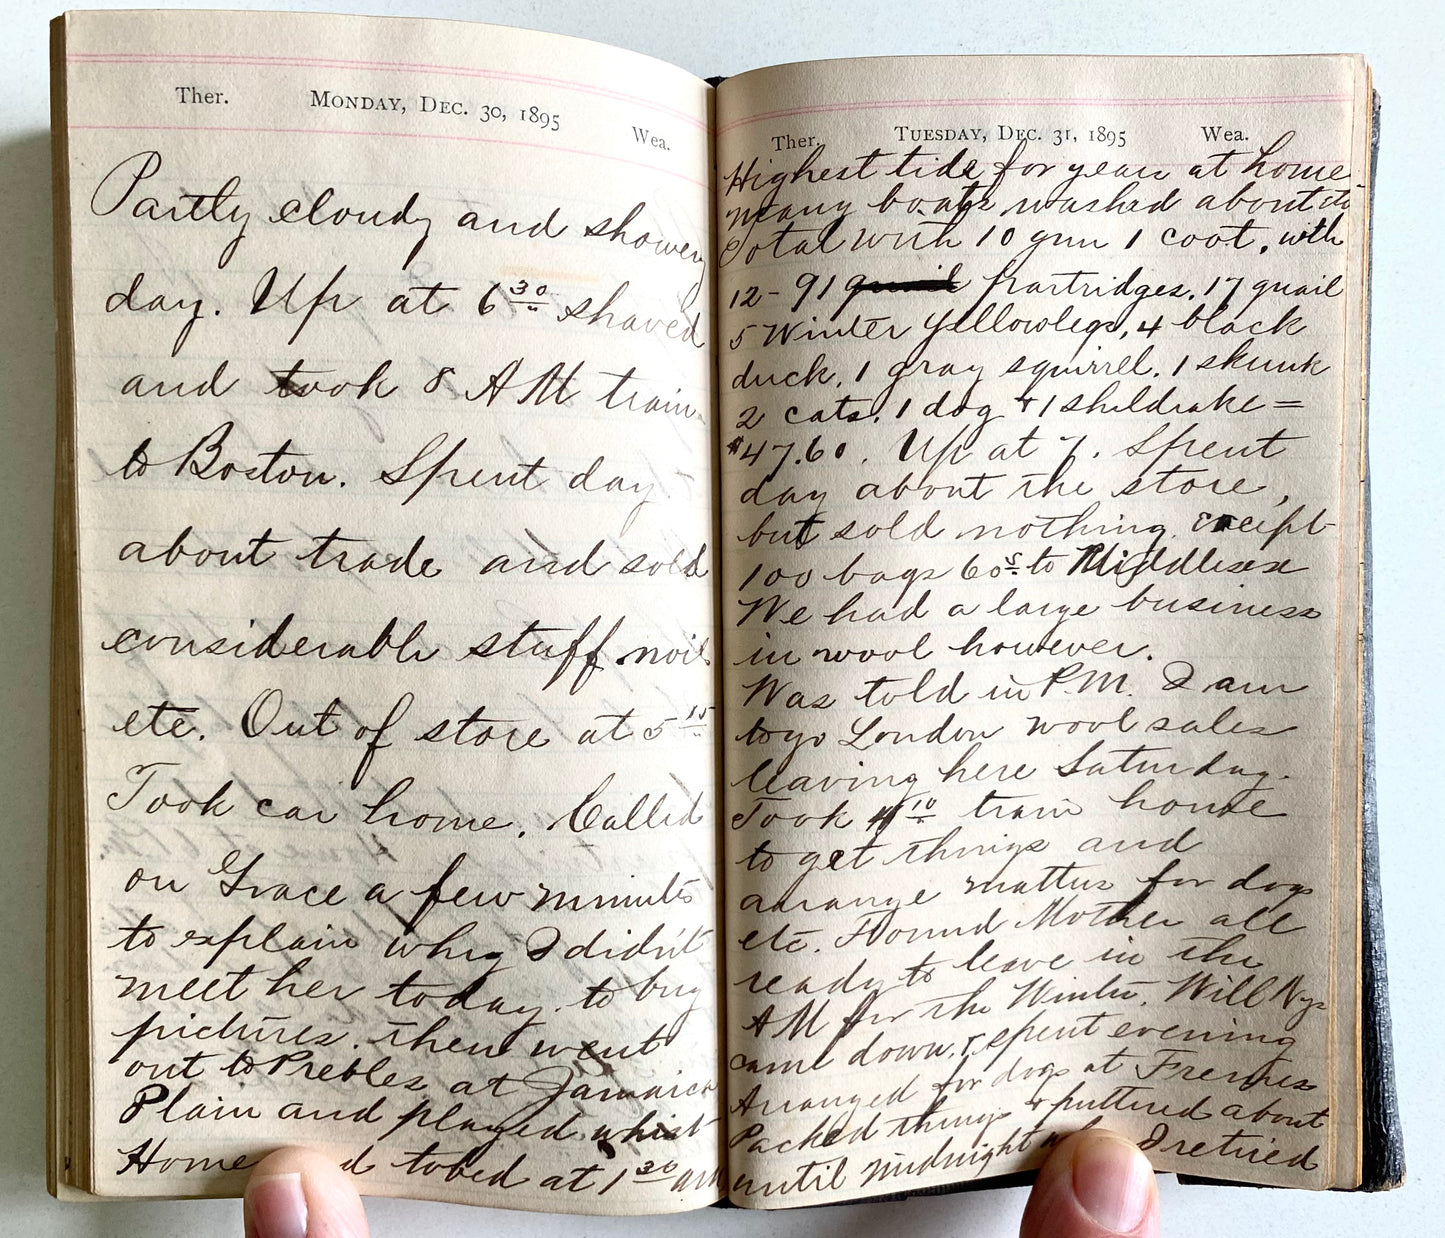 Ther. Monday, Dec. 30, 1895 Wea.
Partly cloudy and showery
day. Up at 6 30 shaved
and took 8 AM train
to Boston. Spent day
about trade and sold
considerable stuff. noil
etc. Out of store at 5 15
Took car home. Called
on Grace a few minutes
to explain why I didn't
meet her today to buy
pictures. Then went
out to Prebles at Jamaica
Plain and played whist
Home and to bed at 1 30 AM
Ther. Tuesday, Dec. 31, 1895 Wea.
Highest tide for year at home
many boats washed about etc
Total with 10 gun 1 coot, with
12 - 91 quail partridges, 17 quail
5 Winter Yellowlegs, 4 black
duck, 1 gray squirrel, 1 skunk
2 cats, 1 dog & 1 sheldrake =
$47.60. Up at 7. Spent
day about the store,
but sold nothing except
100 bags 60s to Middlesex
We had a large business
in wool however.
Was told in P.M. I am
to go London wool sales
leaving here Saturday.
Took 4 10 train home
to get things and
arrange matters for dogs
etc. Found Mother all
ready to leave in the
AM for the Winter. Will Nye
came down & spent evening
Arranged for dogs at
Packed things & puttered about
until midnight I retired